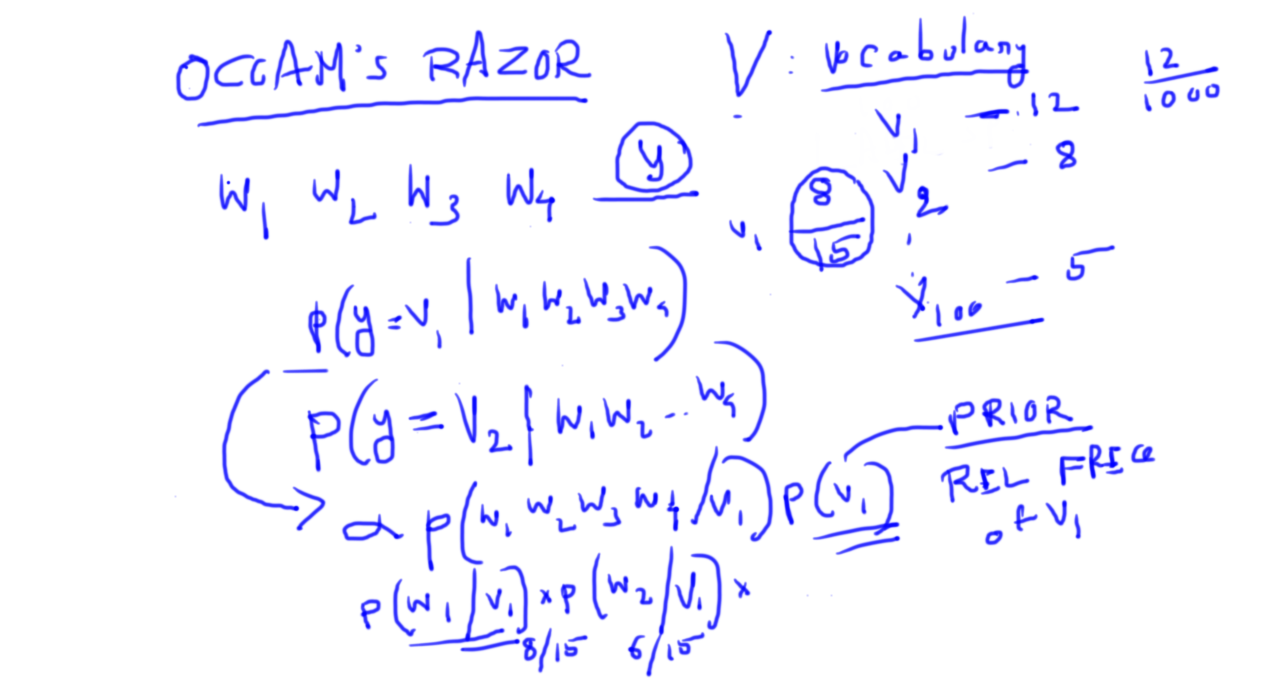 OCCAM's RAZOR
V : Vocabulary
12/1000
V₁ — 12
V₂ — 8
V₁₀₀ — 5
W₁ W₂ W₃ W₄ y
V₁ 8/15
P(y=V₁ | W₁ W₂ W₃ W₄)
P(y = V₂ | W₁ W₂ -- W₄)
∝ P(W₁ W₂ W₃ W₄ / V₁) P(V₁)
PRIOR
REL FREQ
of V₁
P(W₁ / V₁) × P(W₂ / V₁) ×
8/15 6/15